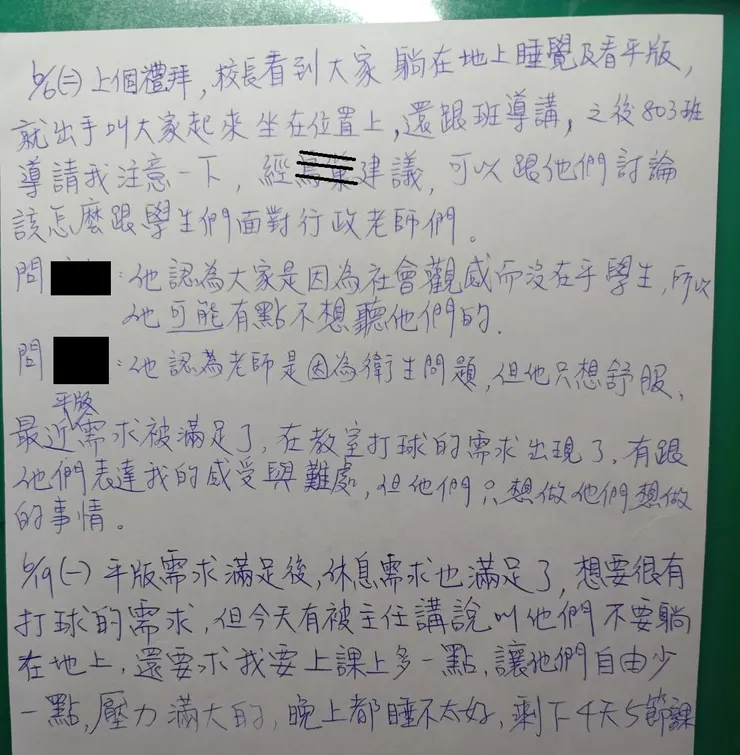 6/6(二)上個禮拜,校長看到大家躺在地上睡覺及看平版,
就出手叫大家起來坐在位置上,還跟班導講,之後803班
導請我注意一下,經建議,可以跟他們討論
該怎麼跟學生們面對行政老師們。
問 :他認為大家是因為社會觀感而沒在乎學生,所以
他可能有點不想聽他們的.
問 :他認為老師是因為衛生問題,但他只想舒服、
平版
最近需求被滿足了,在教室打球的需求出現了,有跟
他們表達我的感受與難處,但他們只想做他們想做
的事情。
6/19(一)平版需求滿足後,休息需求也滿足了,想要很有
打球的需求,但今天有被主任講說叫他們不要躺
在地上,還要求我要上課上多一點,讓他們自由少
一點,壓力滿大的,晚上都睡不太好,剩下4天5節課